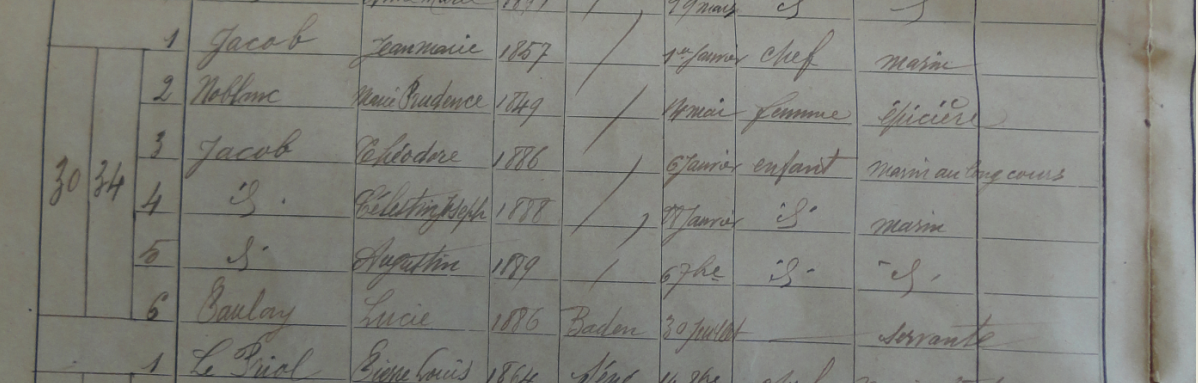 1891 / 29 mars id id
1 Jacob Jean marie 1857 / 1er Janvier chef marin
2 Noblanc Marie Prudence 1849 / 14 mai femme épicière
3 Jacob Théodore 1886 / 6 Janvier enfant marin au long cours
30 34 4 id. Célestin Joseph 1888 / Janvier id. marin
5 id Augustin 1889 / 6 7bre id. id.
6 Lucie 1886 Baden 30 Juillet — servante
1 Le Priol Pierre Louis 1864 Séné 8bre chef